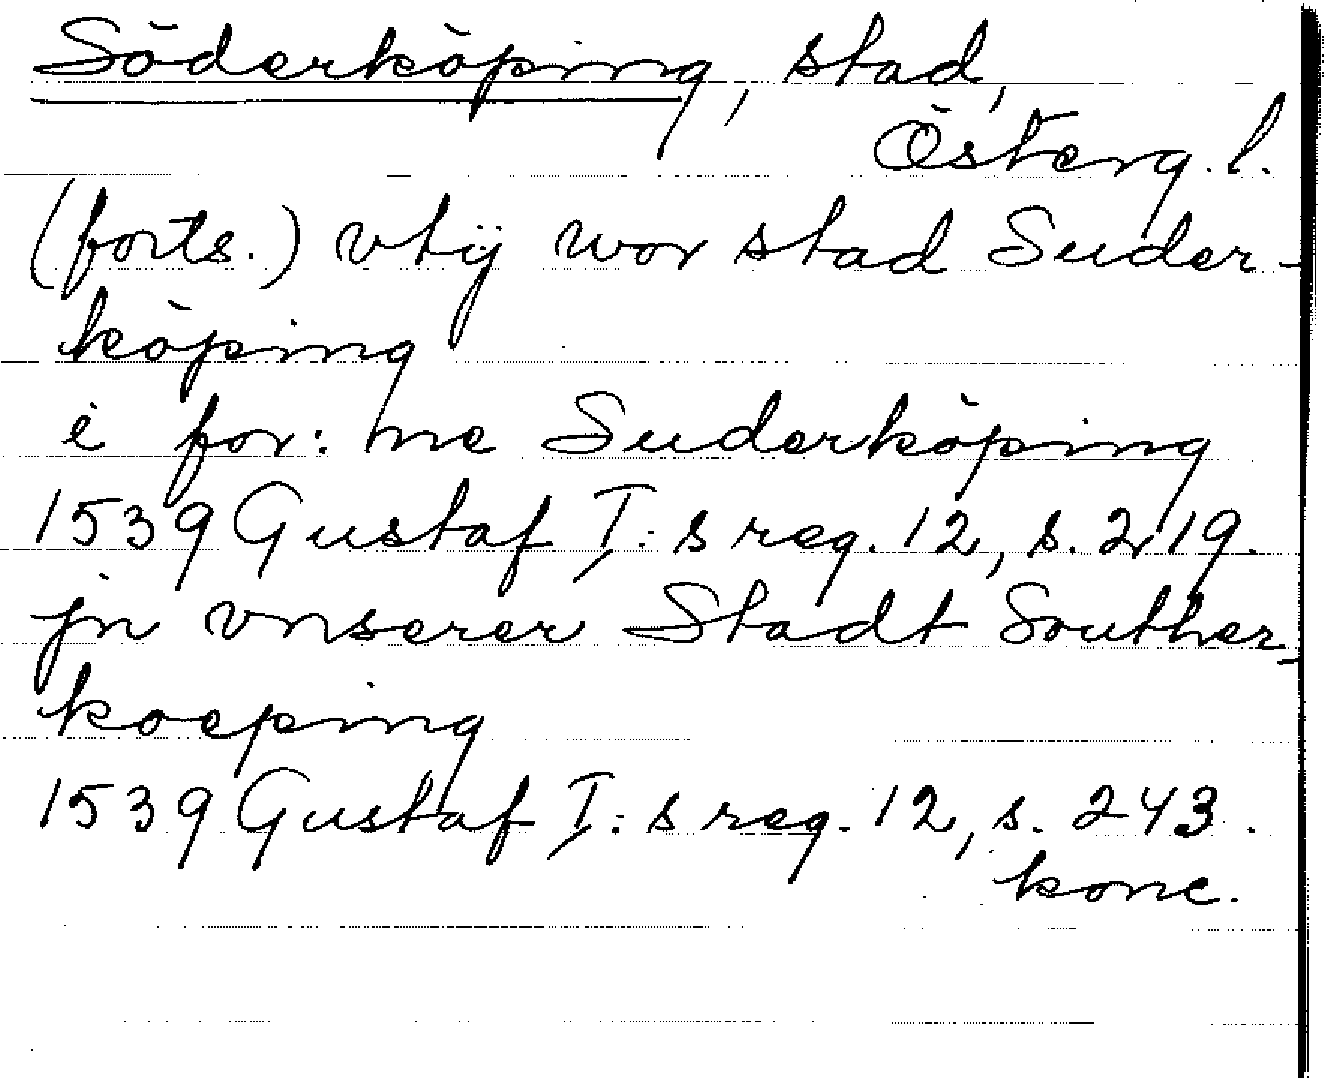 Söderköping, stad,
Österg. l.
(forts.) vtij wor stad Suder-
köping
i for: me Suderköping
1539 Gustaf I:s reg. 12, s. 219.
jn vnserer Stadt Souther-
koeping
1539 Gustaf I:s reg. 12, s. 243.
konc.